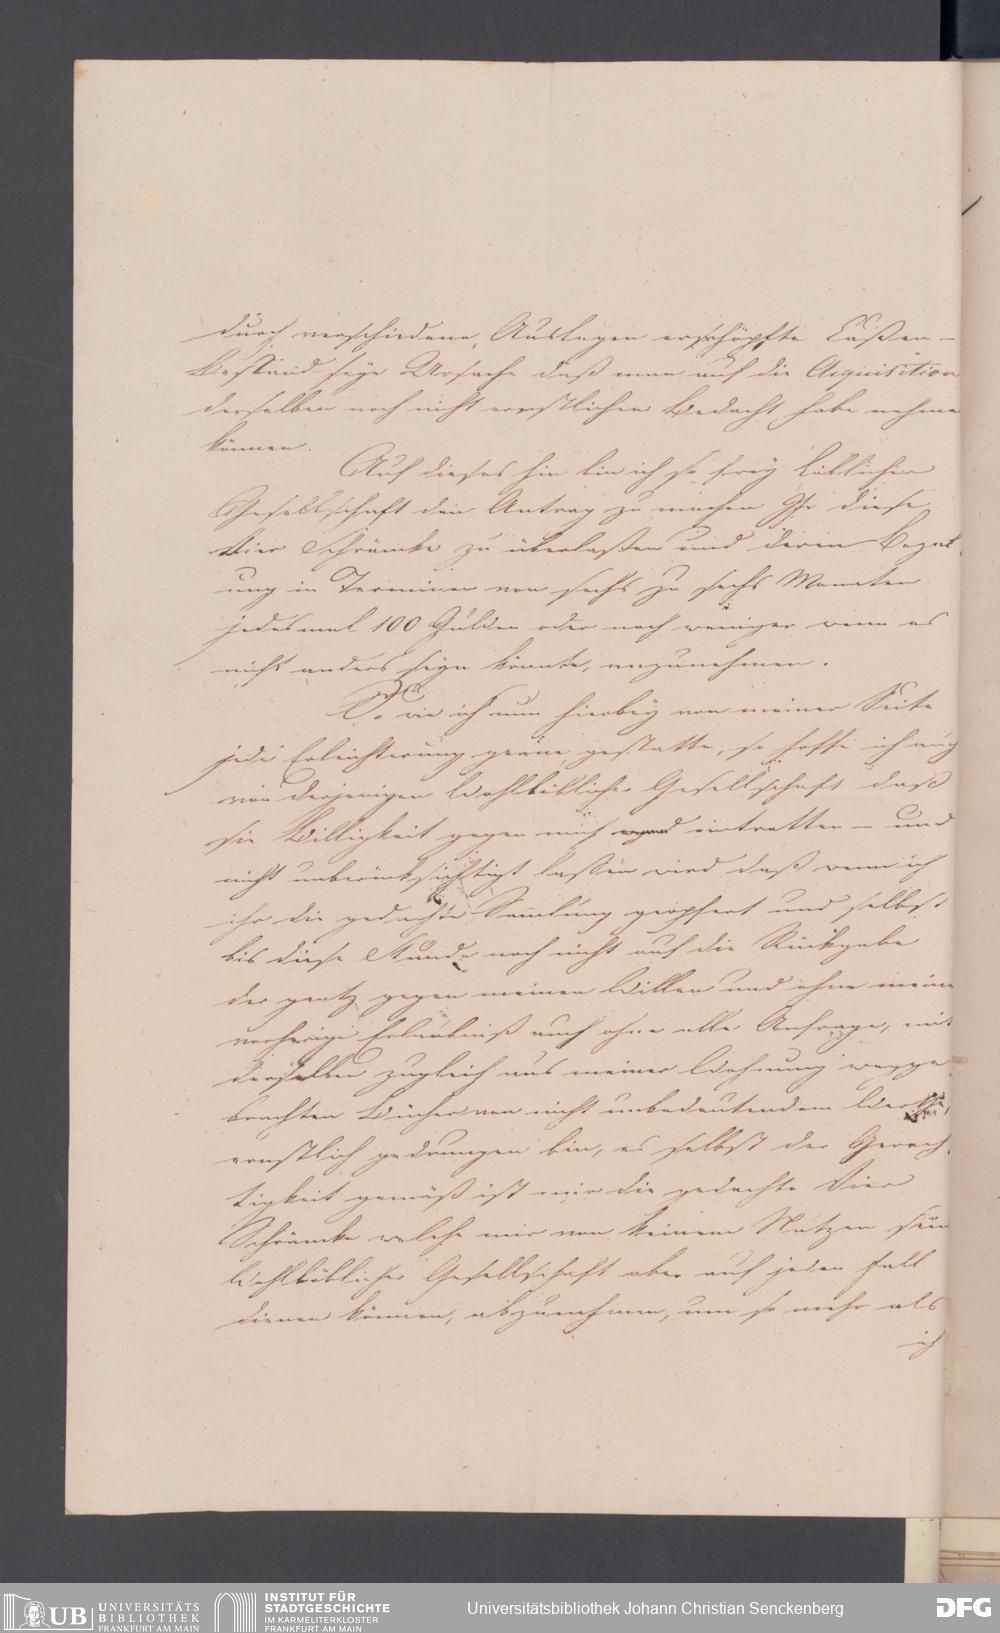 durch verschiedene Auslagen erschöpfte Caßen-
Bestand seye Ursache daß man auf die Acquisition
derselben noch nicht ernstlichen Bedacht habe nehmen
können.
Auf dieses hin bin ich so frey löblicher
Gesellschaft den Antrag zu machen Ihr diese
Vier Schräncke zu überlaßen und deren Bezal-
ung in Terminen von sechs zu sechs Monaten
jedesmal 100 Gulden oder noch weniger wenn es
nicht anders seyn könnte, anzunehmen.
So wie ich nun hierbey von meiner Seite
jede Erleichterung gerne gestatte, so hoffe ich auch
von derjenigen Wohllöblicher Gesellschaft daß
sie Billigkeit gegen mich eintretten - und
nicht unberücksichtigt lassen wird daß wenn ich
ihr die gedachte Sammlung geopfert und selbst
bis diese Stunde noch nicht auf die Rückgabe
der gantz gegen meinen Willen und ohne meine
vorherige Erlaubniß auch ohne alle Anfrage, mit
derselben zugleich aus meiner Wohnung wegge-
brachten Bücher von nicht unbedeutendem Werthe,
ernstlich gedrungen bin, es selbst der Gerech-
tigkeit gemäß ist mir die gedachte Vier
Schräncke welche mir von keinem Nutzen sein
Wohllöblicher Gesellschaft aber auf jeden Fall
dienen können, abzunehmen, um so mehr als
ich
UB UNIVERSITÄTS
BIBLIOTHEK
FRANKFURT AM MAIN
INSTITUT FÜR
STADTGESCHICHTE
IM KARMELITERKLOSTER
FRANKFURT AM MAIN
Universitätsbibliothek Johann Christian Senckenberg
DFG